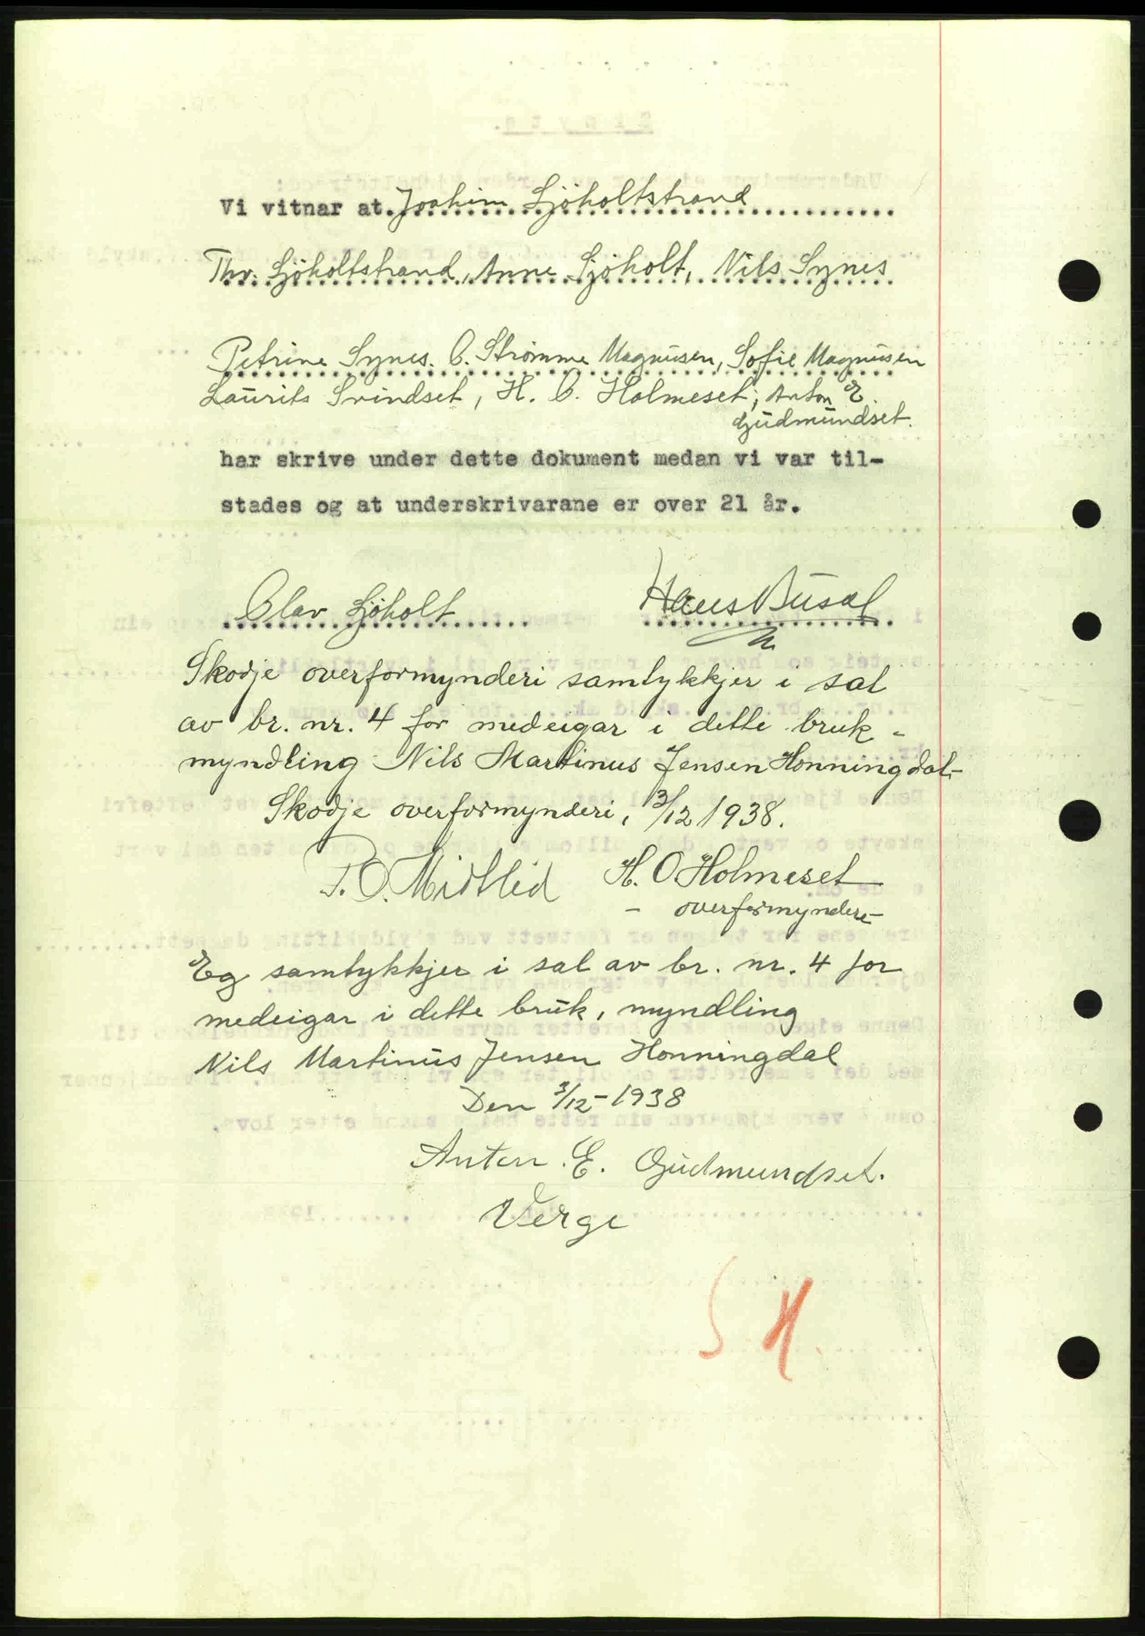 Vi vitnar at Joakim Sjöholtstrand
Thv. Sjöholtstrand, Anne Sjöholt, Nils Synes
Petrine Synes. O. Strömme Magnusen, Sofie Magnusen
Laurits Svindset, H. O. Holmeset, Anton E.
Gudmundset.
har skrive under dette dokument medan vi var til-
stades og at underskrivarane er over 21 år.
Olav Sjöholt Hans Busal
Skodje overformynderi samtykkjer i sal
av br. nr. 4 for medeigar i dette bruk -
myndling Nils Martinus Jensen Honningdal-
Skodje overformynderi, 3/12 1938.
P. O. Midtlid H. O Holmeset
- overformyndere-
Eg samtykkjer i sal av br. nr. 4 for
medeigar i dette bruk, myndling
Nils Martinus Jensen Honningdal
Den 3/12-1938
Anton. E. Gudmundset.
Verge